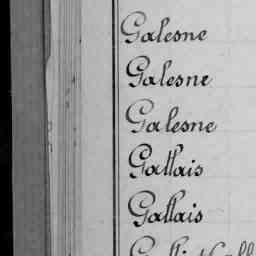 Galesne
Galesne
Galesne
Gallais
Gallais